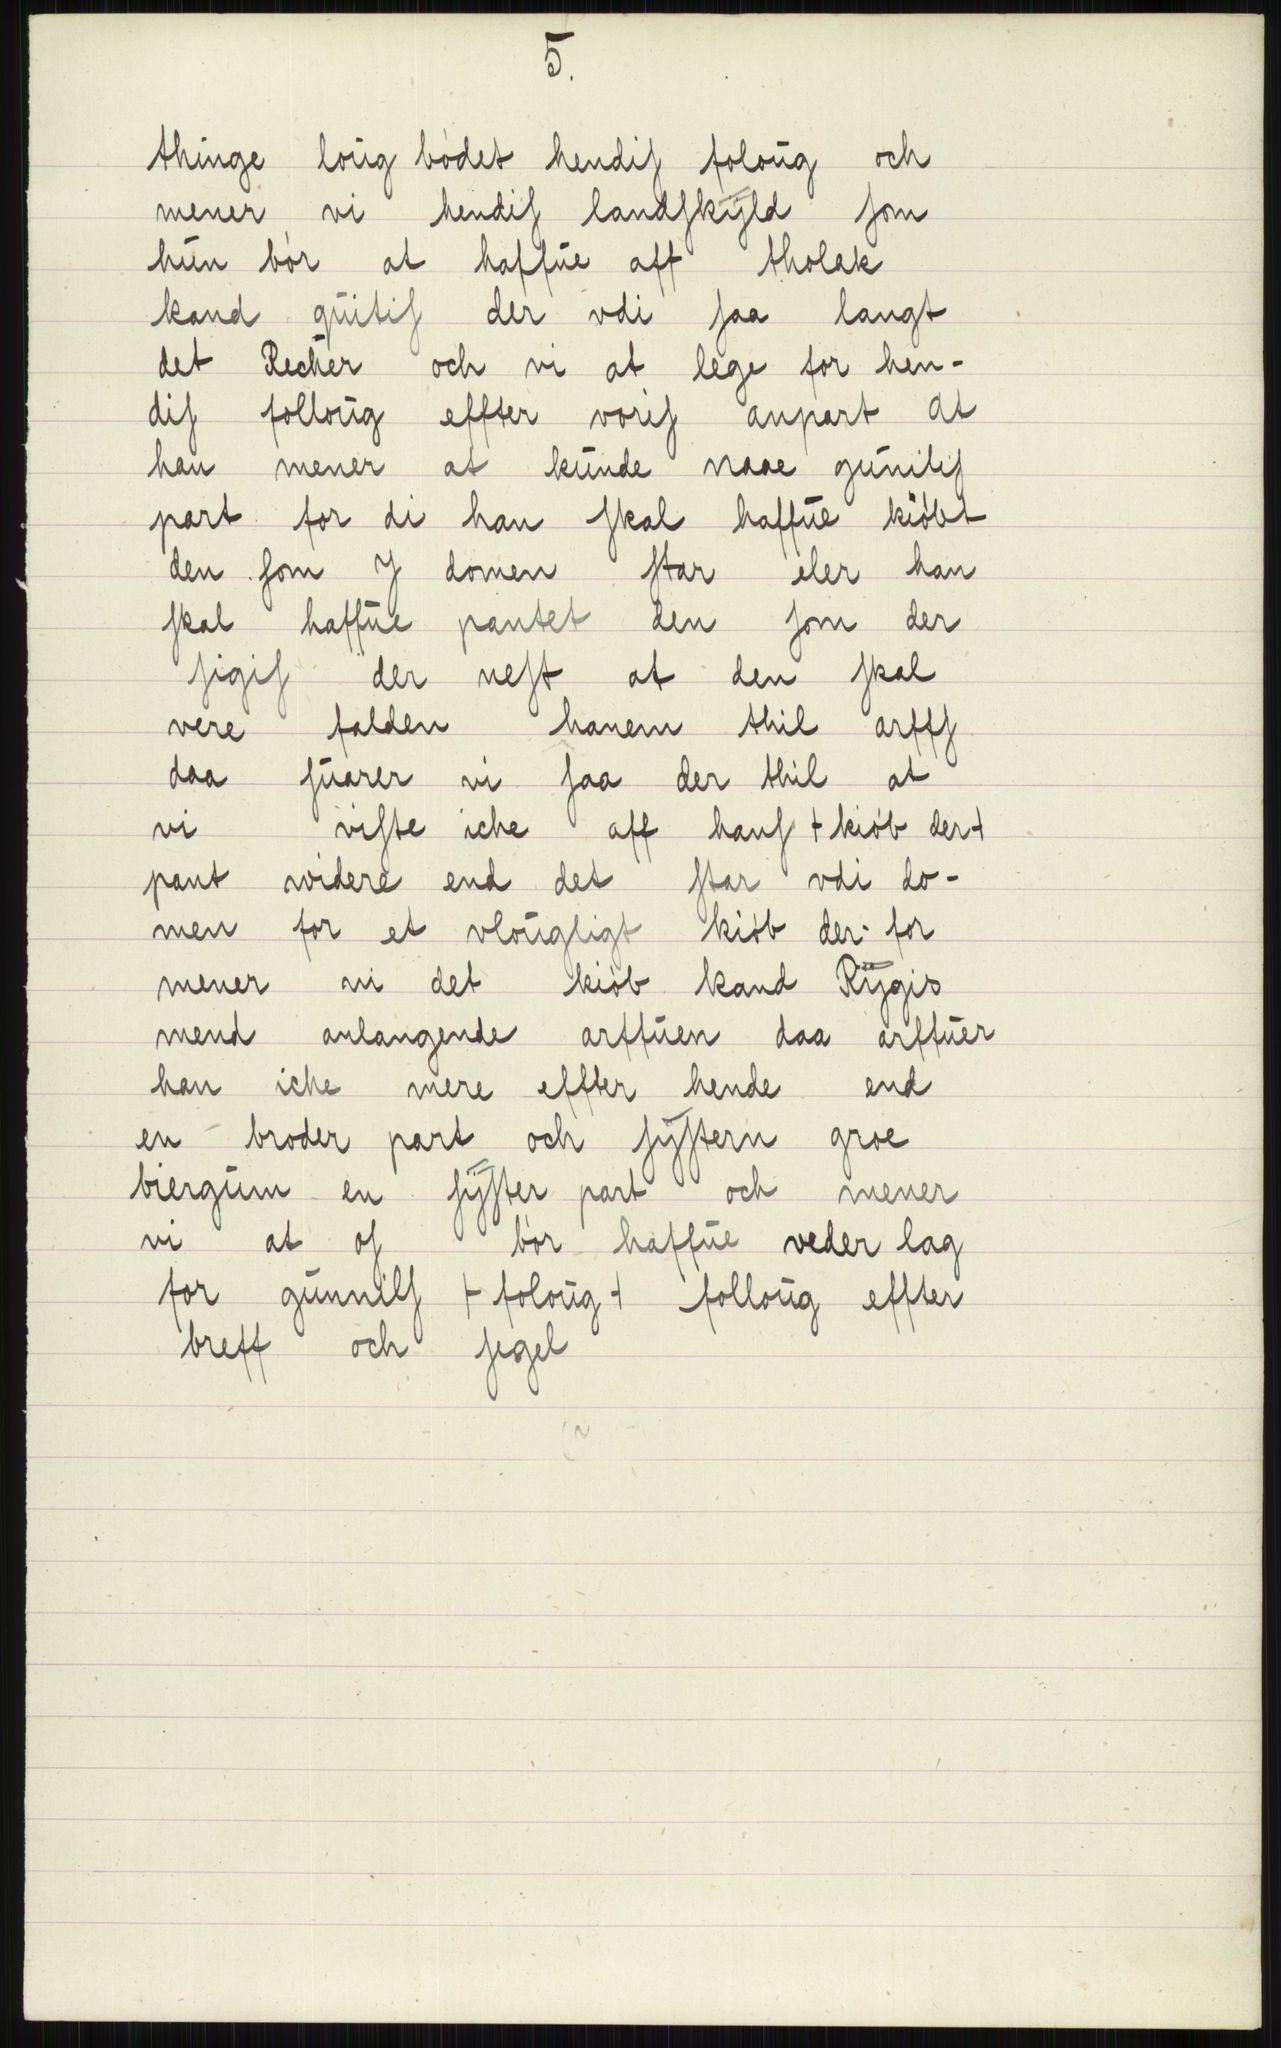 5.
thinge loug bödet hendis foloug och
mener vi hendis landskÿld som
hun bör at haffue aff tholak
kand quitis der vdi saa langt
det Recher och vi at lege for hen-
dis folloug effter voris anpart At
han mener at kunde naae gunilis
part for di han skal haffue kiöbt
den som J domen star eler han
skal haffue pantet den som der
sigis der nest at den skal
vere falden hanem thil arffs
daa suarer vi saa der thil at
vi viste iche aff hans + kiöb der +
pant widere end det star vdi do-
men for et vlougligt kiöb der for
mener vi det kiöb kand Rÿgis
mend anlangende arffuen daa arffuer
han iche mere effter hende end
en broder part och sÿstern groe
biergum en sÿster part och mener
vi at os bör haffue veder lag
for gunnils + foloug + folloug effter
breff och segel